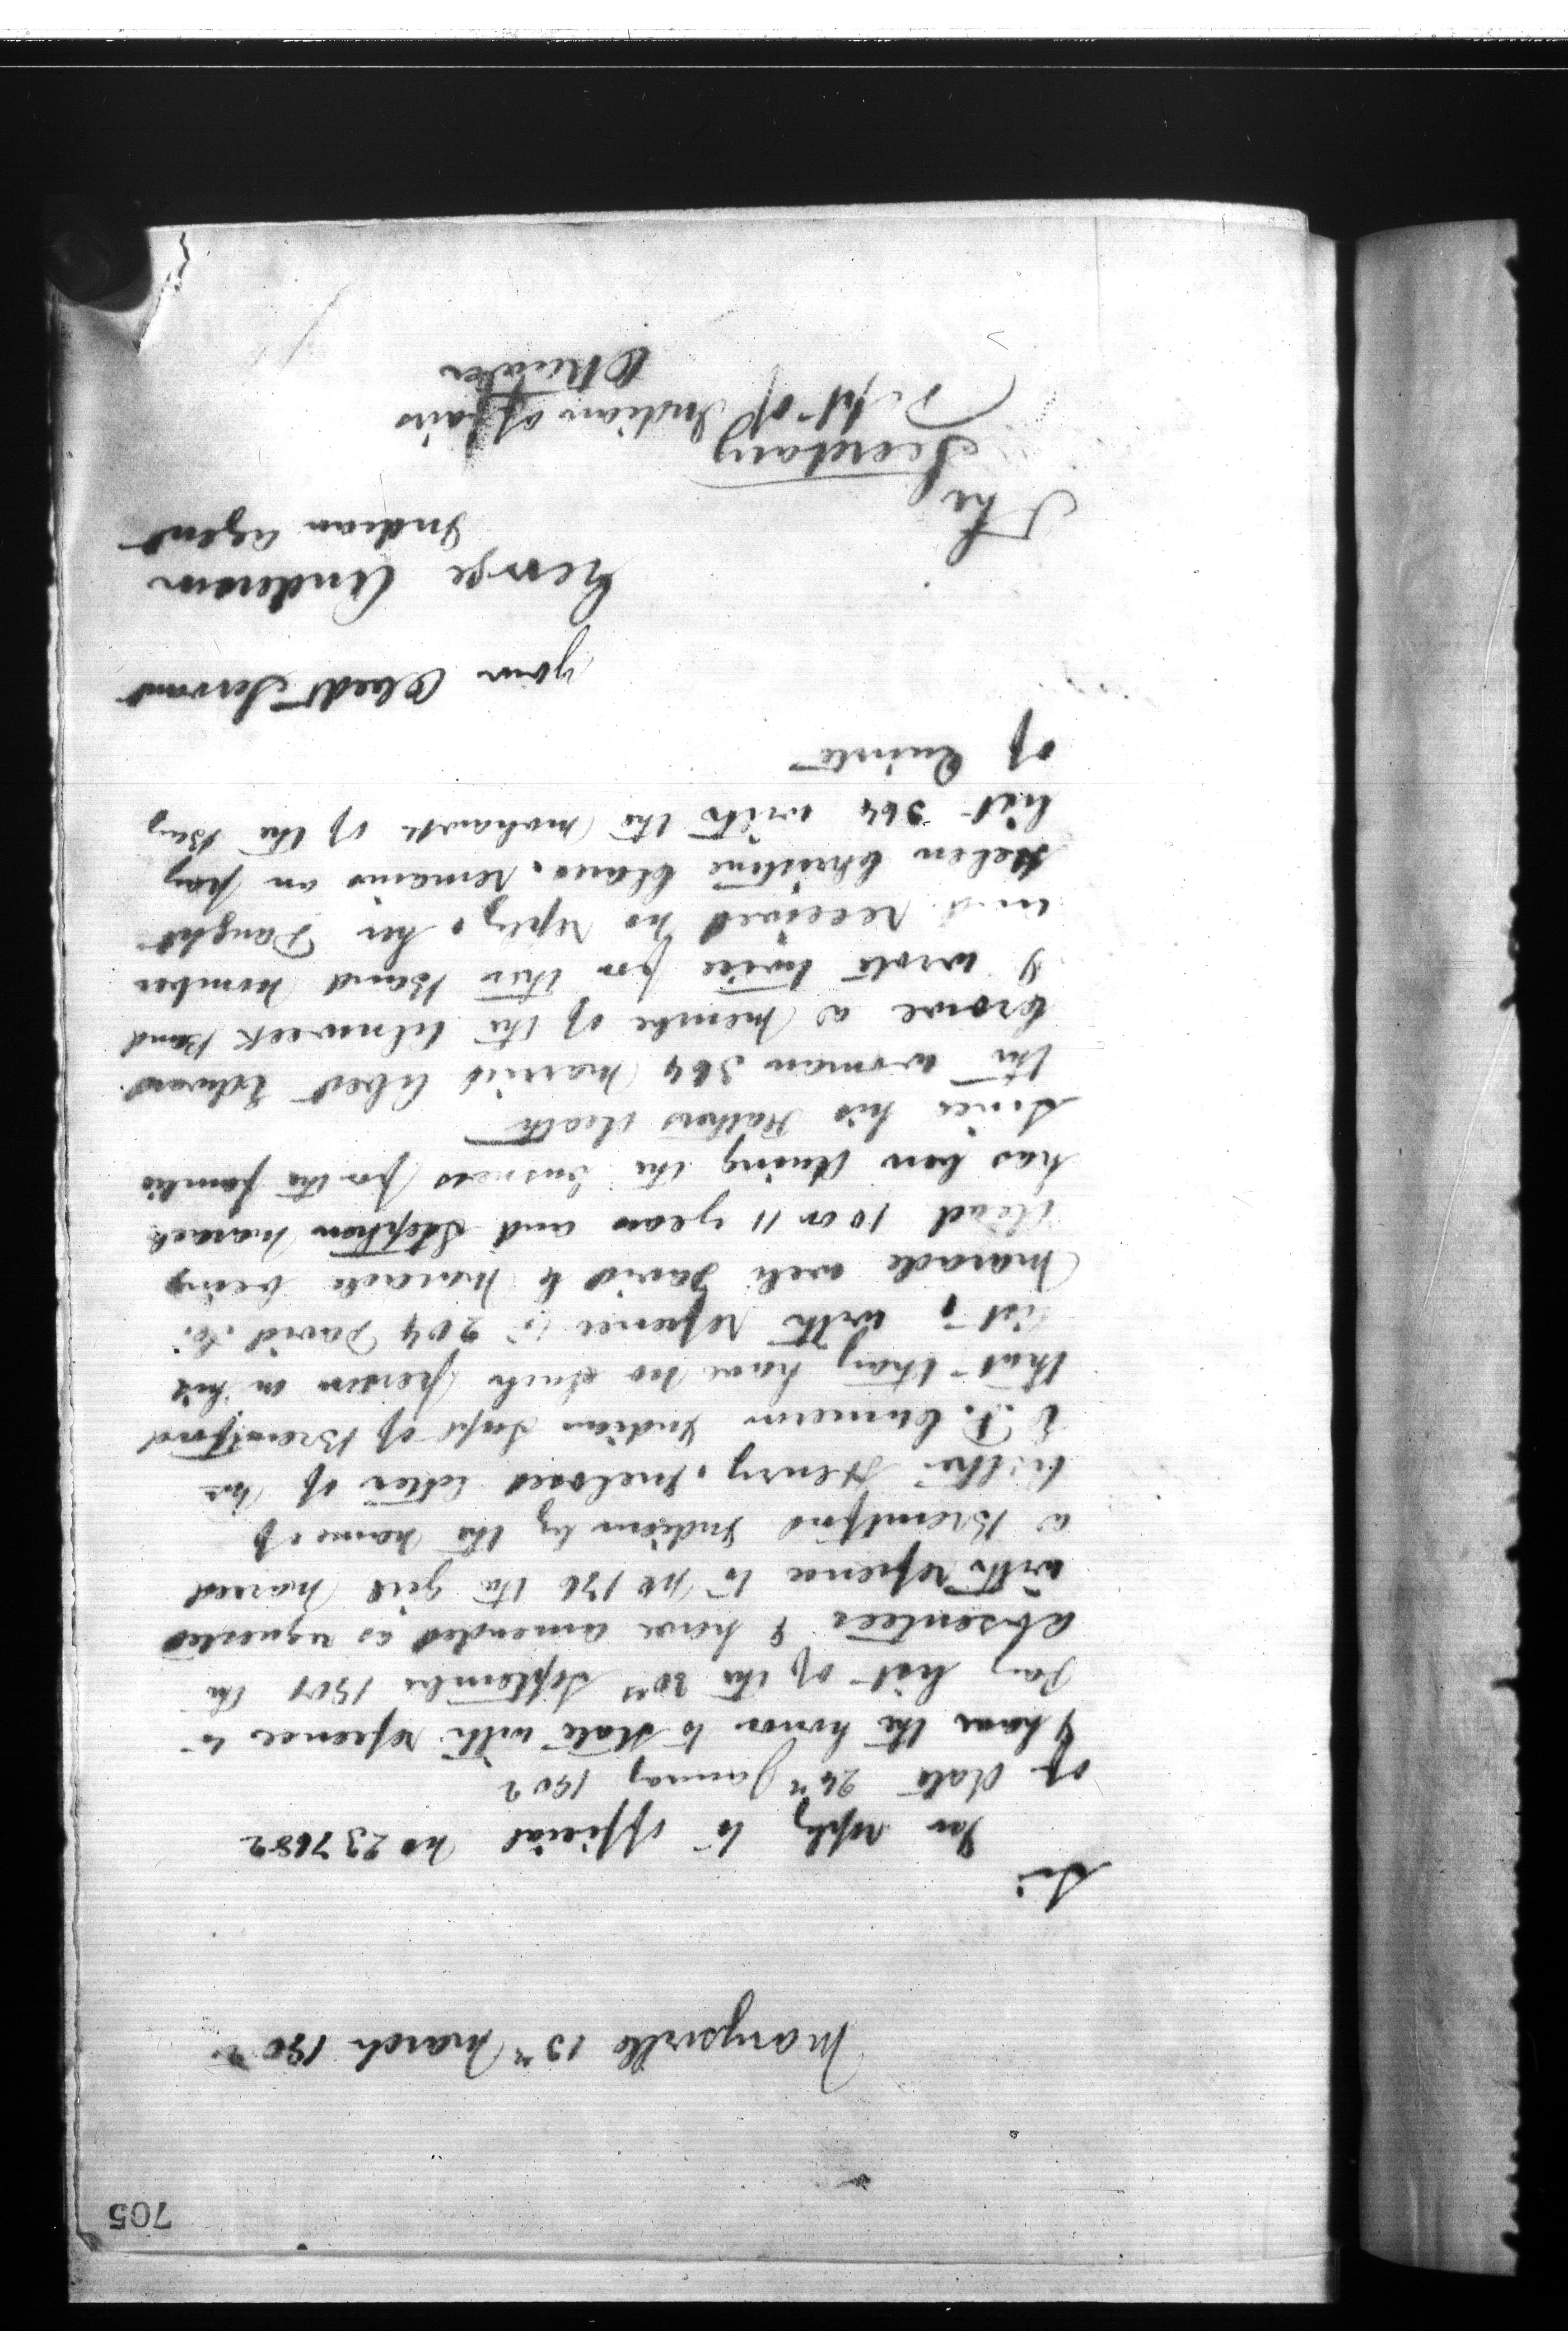 705
Marysville 13th March 1902
Sir
For reply to official No 237682
of date 24th January 1902
I have the honor to State with refrence to
Pay list of the 30th September 1901 the
absentees I have amended as requested
with refrence to No 176 the girl married
a Brantford Indian by the name of
Henry. Inclosed letter of
E D. Cameron Indian Supt of Brantford
that thay have no such person on his
list, with refrence to 204 David C.
Maracle David C Maracle being
dead 10 or 11 years and Stephen Maracle
has ben duing the busness for the familie
Since his Fathers death
the woman 364 married Albert Edward
Crowe a Membe of the Alnweek Band
I wrote twice for ther Band Number
and received no reply. her Daught
Helen Christine Claus. remains on pay
list 364 with the Mohawk of the Bay
of Quinte
your Obedt Servant
George Anderson
Indian agent
The
Secretary
Dept of Indian affairs
Ottawa